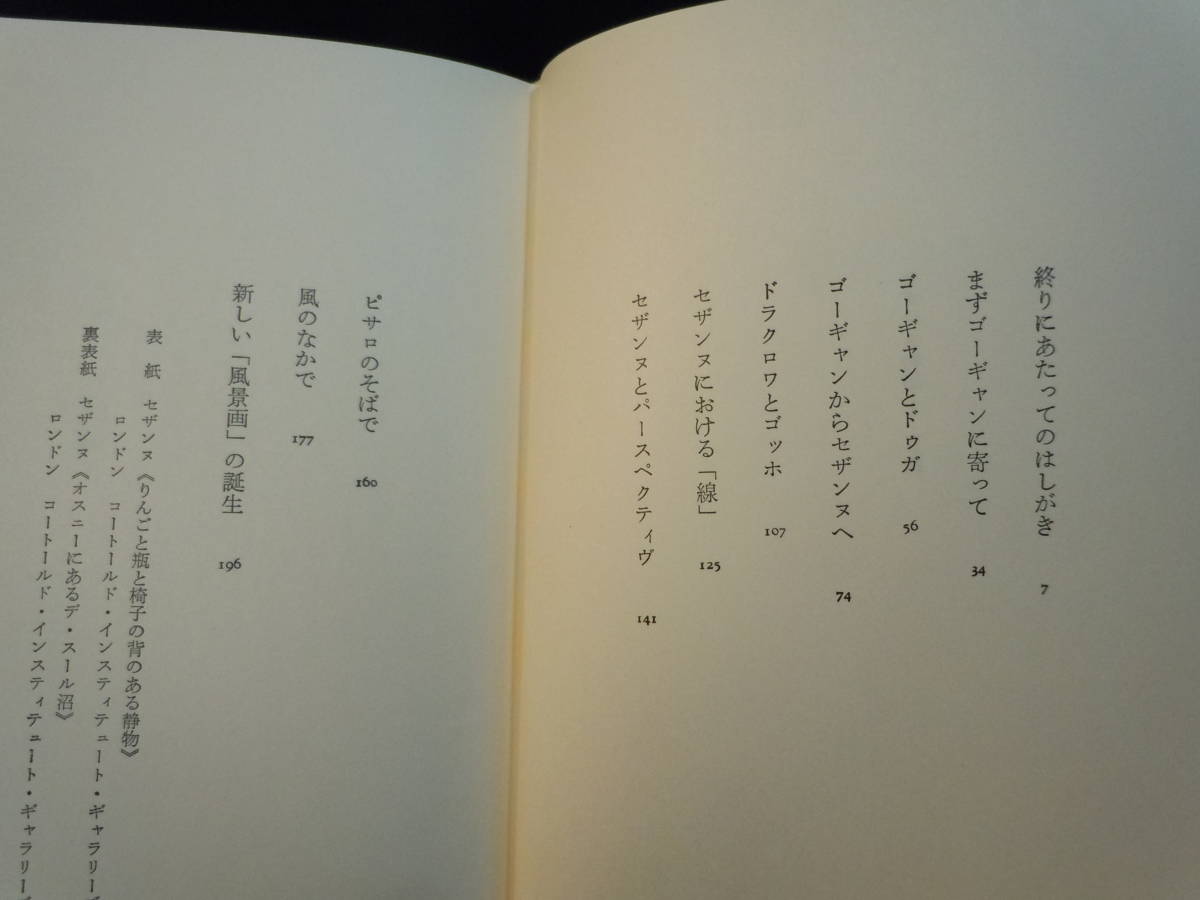 終りにあたってのはしがき 7
まずゴーギャンに寄って 34
ゴーギャンとドゥガ 56
ゴーギャンからセザンヌへ 74
ドラクロワとゴッホ 107
セザンヌにおける「線」 125
セザンヌとパースペクティヴ 141
ピサロのそばで 160
風のなかで 177
新しい「風景画」の誕生 196
表　紙　セザンヌ《りんごと瓶と椅子の背のある静物》
ロンドン　コートールド・インスティテュート・ギャラリーズ
裏表紙　セザンヌ《オスニーにあるデ・スール沼》
ロンドン　コートールド・インスティテュート・ギャラリー